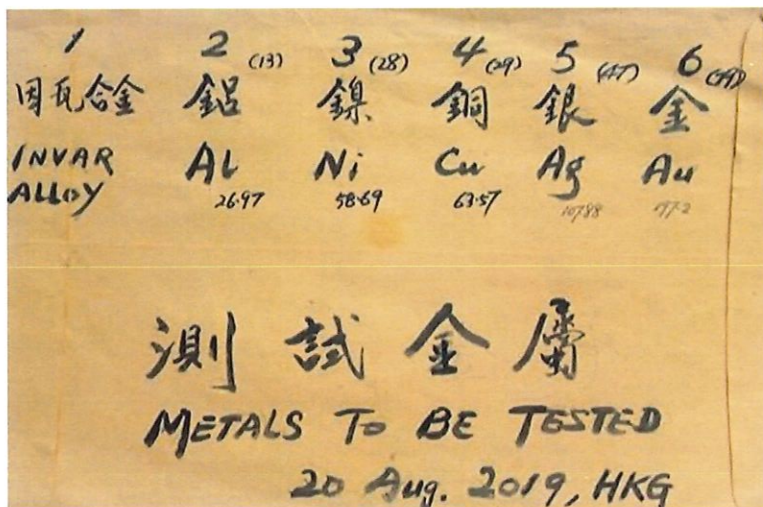 1 2 (13) 3 (28) 4 (29) 5 (47) 6 (79)
因瓦合金 鋁 鎳 銅 銀 金
INVAR Al Ni Cu Ag Au
ALLOY 26.97 58.69 63.57 107.88 197.2
測試金屬
METALS TO BE TESTED
20 Aug. 2019, HKG